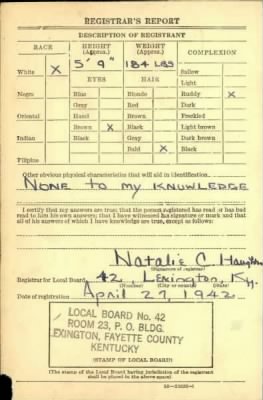 REGISTRAR'S REPORT
DESCRIPTION OF REGISTRANT
RACE HEIGHT (Approx.) WEIGHT (Approx.) COMPLEXION
White X 5' 9" 184 LBS Sallow
EYES HAIR Light
Negro Blue Blonde Ruddy X
Gray Red Dark
Oriental Hazel Brown Freckled
Brown X Black Light brown
Indian Black Gray Dark brown
Bald X Black
Filipino
Other obvious physical characteristics that will aid in identification
NONE TO MY KNOWLEDGE
I certify that my answers are true; that the person registered has read or has had
read to him his own answers; that I have witnessed his signature or mark and that
all of his answers of which I have knowledge are true, except as follows:
Natalie C.
(Signature of registrar)
Registrar for Local Board 42, Lexington, Ky.
(Number) (City or county)
Date of registration April 27, 1942
LOCAL BOARD No. 42
ROOM 23, P. O. BLDG.
LEXINGTON, FAYETTE COUNTY
KENTUCKY
(STAMP OF LOCAL BOARD)
(The stamp of the Local Board having jurisdiction of the registrant
shall be placed in the above space)